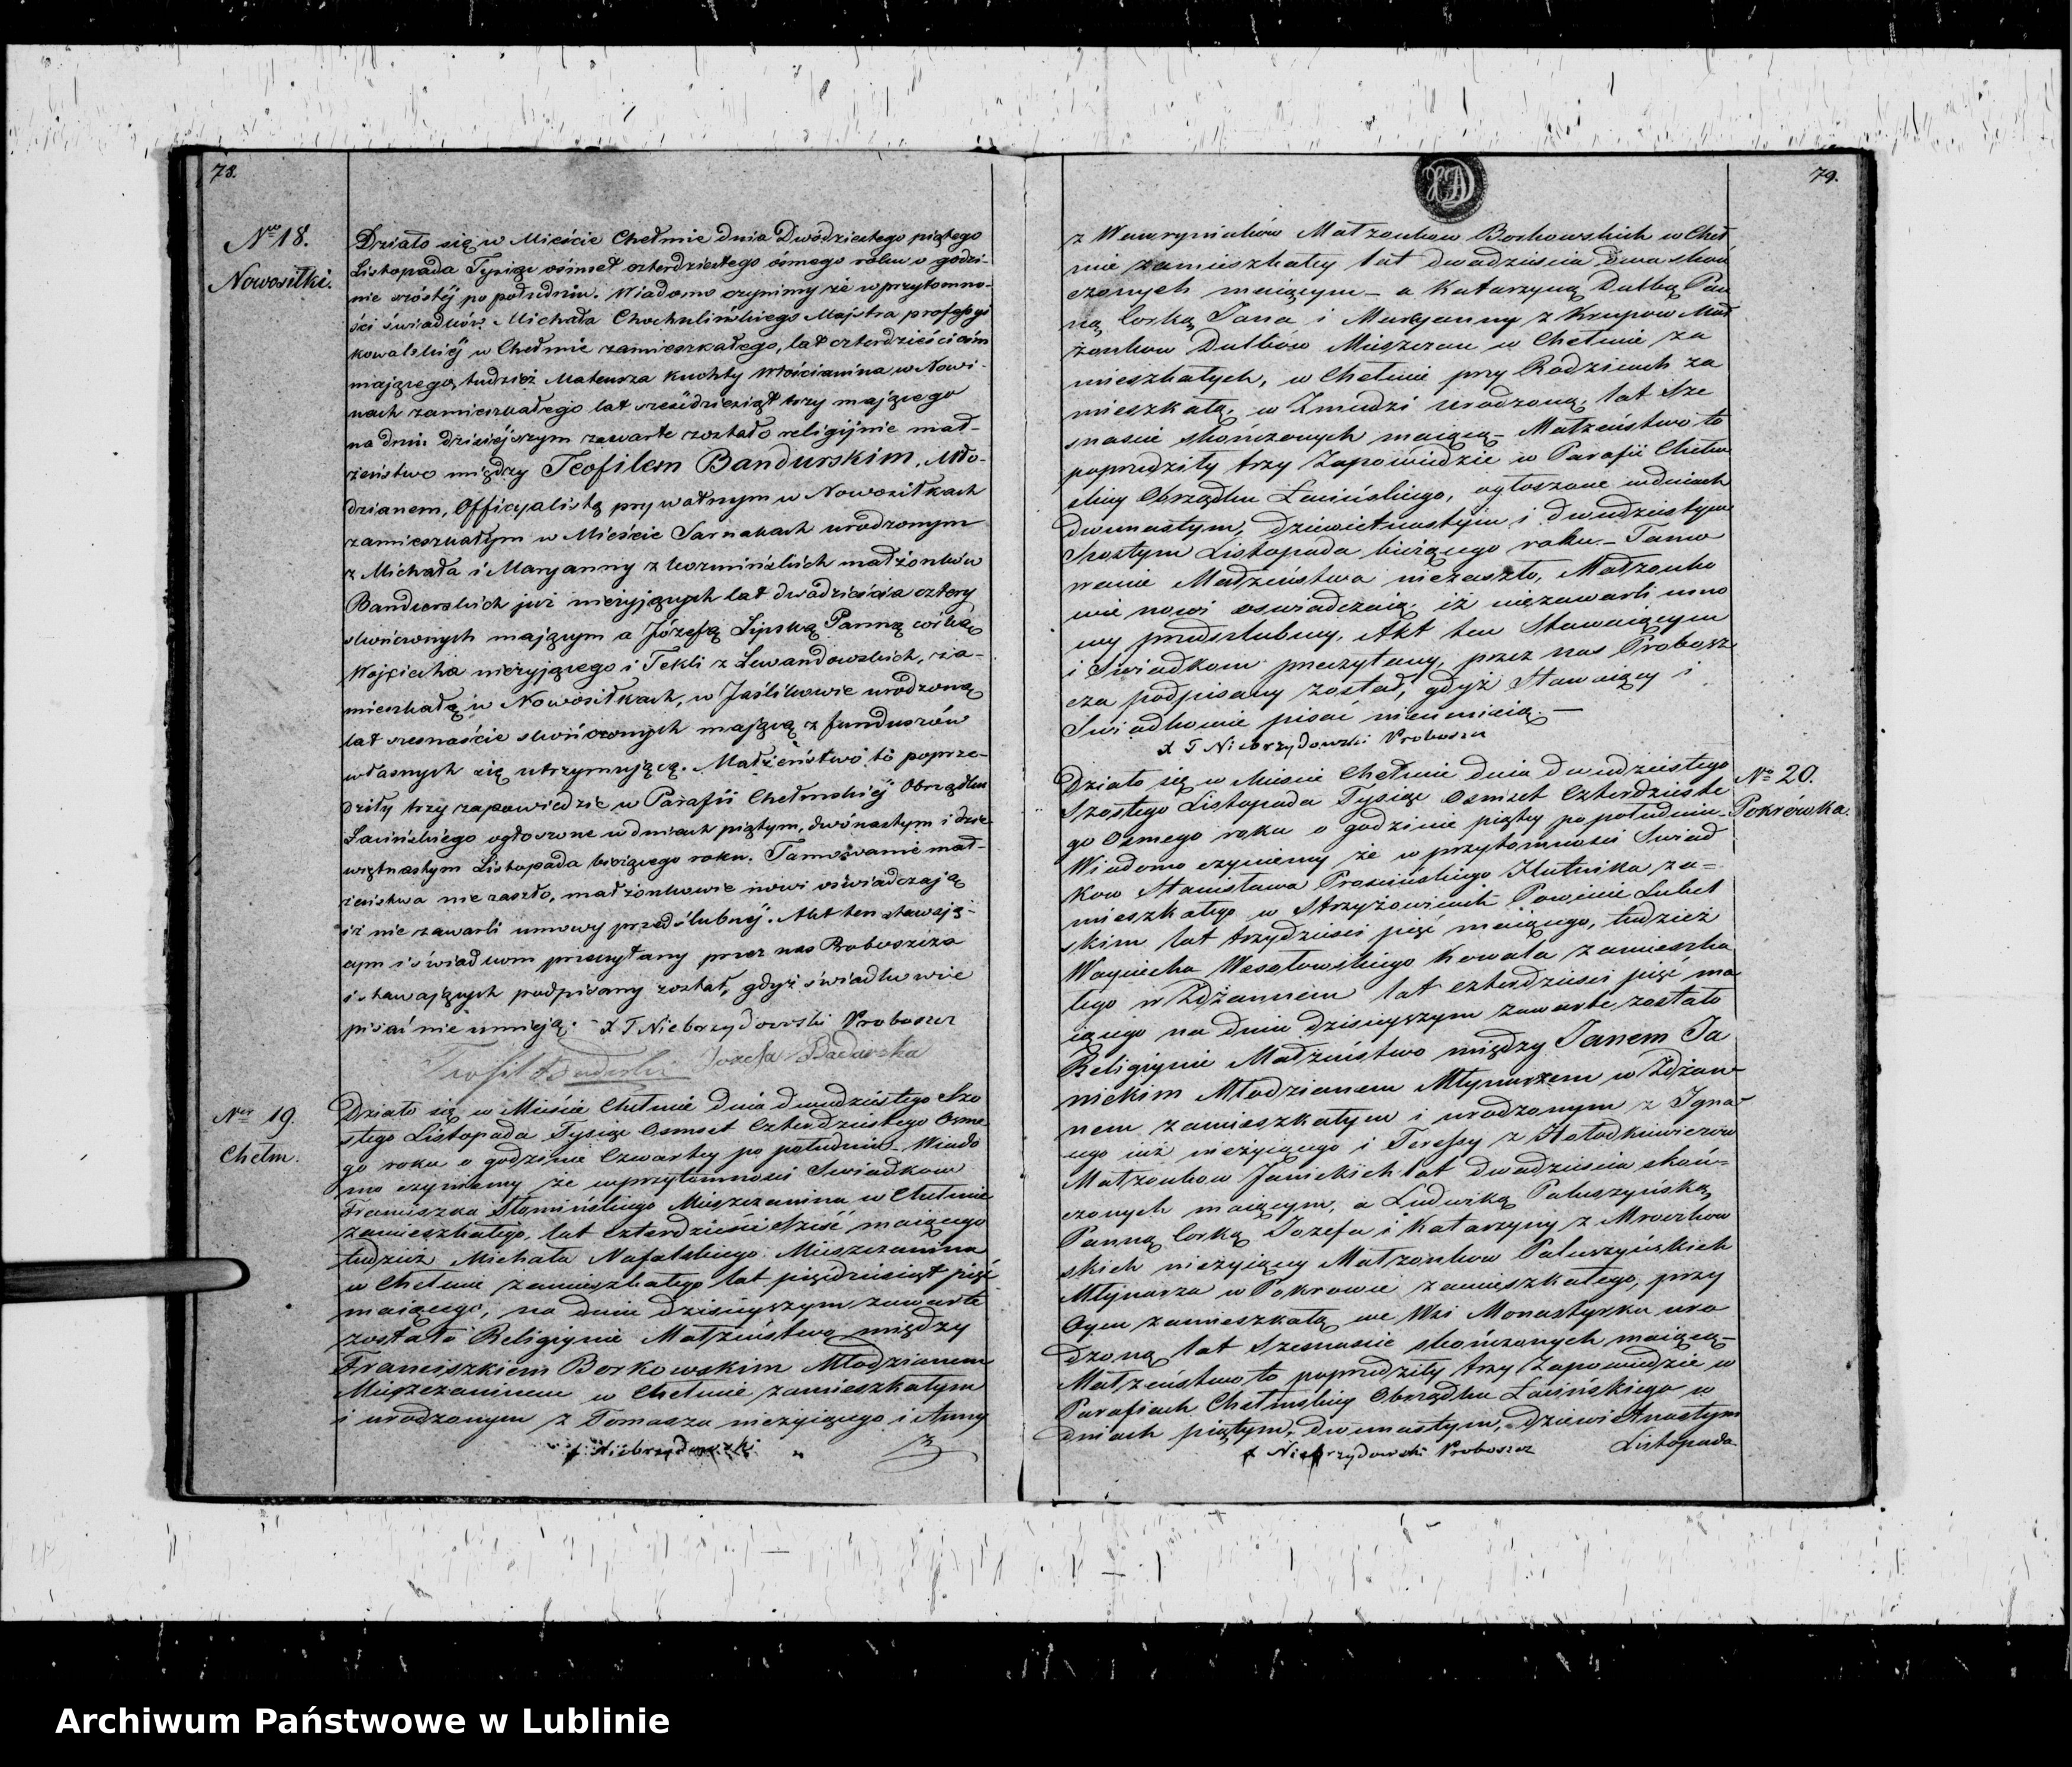 78.
Nro 18.
Nowosiłki.
Działo się w Mieście Chełmie dnia Dwódziestego piątego
Listopada Tysiąc ośmset czterdziestego ósmego roku o godzi-
nie szóstéj po południu. Wiadomo czynimy że w przytomno-
ści świadków Michała Chochulińskiego Majstra professyi
kowalskiéj w Chełmie zamieszkałego, lat czterdzieści ośm
mającego, tudzież Mateusza Kuchty Włościanina w Nowi-
nach zamieszkałego lat sześćdziesiąt trzy mającego
na dniu dzisiéjszym zawarte zostało religijnie mał-
żeństwo między Teofilem Bandurskim, Mło-
dzianem, Officyalistą prywatnym w Nowosiłkach
zamieszkałym w Mieście Sarnakach urodzonym
z Michała i Maryanny z Kozmińskich małżonków
Bandurskich już nieżyjących lat dwadzieścia cztery
skończonych mającym a Józefą Lipską Panną córką
Wojciecha nieżyjącego i Tekli z Lewandowskich, za-
mieszkałą w Nowosiłkach, w Jaślikowie urodzoną
lat szesnaście skończonych mającą z funduszów
własnych się utrzymującą. Małżeństwo to poprze-
dziły trzy zapowiedzie w Parafii Chełmskiéj Obrządku
Łacińskiego ogłoszone w dniach piątym, dwónastym i dzie-
więtnastym Listopada bieżącego roku. Tamowanie mał-
żeństwa nie zaszło, małżonkowie nowi oświadczają
iż nie zawarli umowy przedślubnéj. Akt ten stawają-
cym i świadkom przeczytany przez nas Proboszcza
i stawających podpisany został, gdyż świadkowie
pisać nie umieją. X T Niebrzydowski Proboszcz
Teofil Bandurski Jozefa Badurska
Nro 19.
Chełm.
Działo się w Mieście Chełmie dnia dwudziestego Szo
stego Listopada Tysiąc Osmset Czterdziestego Osme
go roku o godzinie Czwartey po południu. Wiado
mo czyniemy że w przytomności Swiadkow
Franciszka Słomińskiego Mieszczanina w Chełmie
zamieszkałego, lat czterdzieści sześć maiącego
tudzież Michała Nafalskiego Mieszczanina
w Chełmie zamieszkałego lat pięćdziesiąt pięć
maiącego, na dniu dzisieyszym zawarte
zostało Religiynie Małżeństwo między
Franciszkiem Borkowskim Młodzianem
Mieszczaninem w Chełmie zamieszkałym
i urodzonym z Tomasza nieżyiącego i Anny
X Niebrzydowski
79.
z Wawryniuków Małżonkow Borkowskich w Cheł
mie zamieszkałey lat dwadzieścia dwa skoń
czonych maiącym – a Katarzyną Dutką Pan
ną Corką Jana i Maryanny z Krupow Mał
żonkow Dutków Mieszczan w Chełmie za
mieszkałych, w Chełmie przy Rodzicach za
mieszkałą, w Żmudzi urodzoną, lat Sze
snaście skończonych maiącą – Małżeństwo to
poprzedziły trzy Zapowiedzie w Parafii Chełm
skiey Obrządku Łacińskiego, ogłoszone w dniach
dwunastym, dziewiętnastym i dwudziestym
Szostym Listopada bieżącego roku. – Tamo
wanie Małżeństwa niezaszło, Małżonko
wie nowi oswiadczaią iż niezawarli umo
wy przedślubney, Akt ten Stawaiącym
i Świadkom przeczytany, przez nas Probosz
cza podpisany został, gdyż Stawaiący i
Swiadkowie pisać nieumieią. –
X T Niebrzydowski Proboszcz
No 20.
Pokrówka.
Działo się w Mieście Chełmie dnia dwudziestego
Szostego Listopada Tysiąc Osmset Czterdzieste
go Osmego roku o godzinie piątey po południu.
Wiadomo czyniemy że w przytomności Swiad
kow Stanisława Hutnika za=
mieszkałego w Strzyżowicach Powiecie Lubel
skim lat trzydzieści pięć maiącego, tudzież
Woyciecha Wesołowskiego Kowala zamieszka
łego w Zdżannem lat czterdzieści pięć ma
iącego na dniu dzisieyszym zawarte zostało
Religiynie Małżeństwo między Janem Ja
nickim Młodzianem Młynarzem w Zdżan-
nem zamieszkałym i urodzonym z Igna-
cego iuż nieżyiącego i Teressy z Hołodkiewiczow
Małżonkow Janickich lat dwadzieścia skoń-
czonych maiącym, a Ludwiką Paluszyńską
Panną Corką Jozefa i Katarzyny z Mroczkow
skich nieżyiący Małżonkow Paluszyńskich
Młynarza w Pokrowce zamieszkałego, przy
Oycu zamieszkałą we Wsi Monastyrku uro
dzoną lat Szesnaście skończonych maiącą –
Małżeństwo to poprzedziły trzy Zapowiedzie w
Parafiach Chełmskiey Obrządku Łacińskiego w
dniach piątym, dwunastym, dziewiętnastym
Listopada
X Niebrzydowski Proboszcz
Archiwum Państwowe w Lublinie